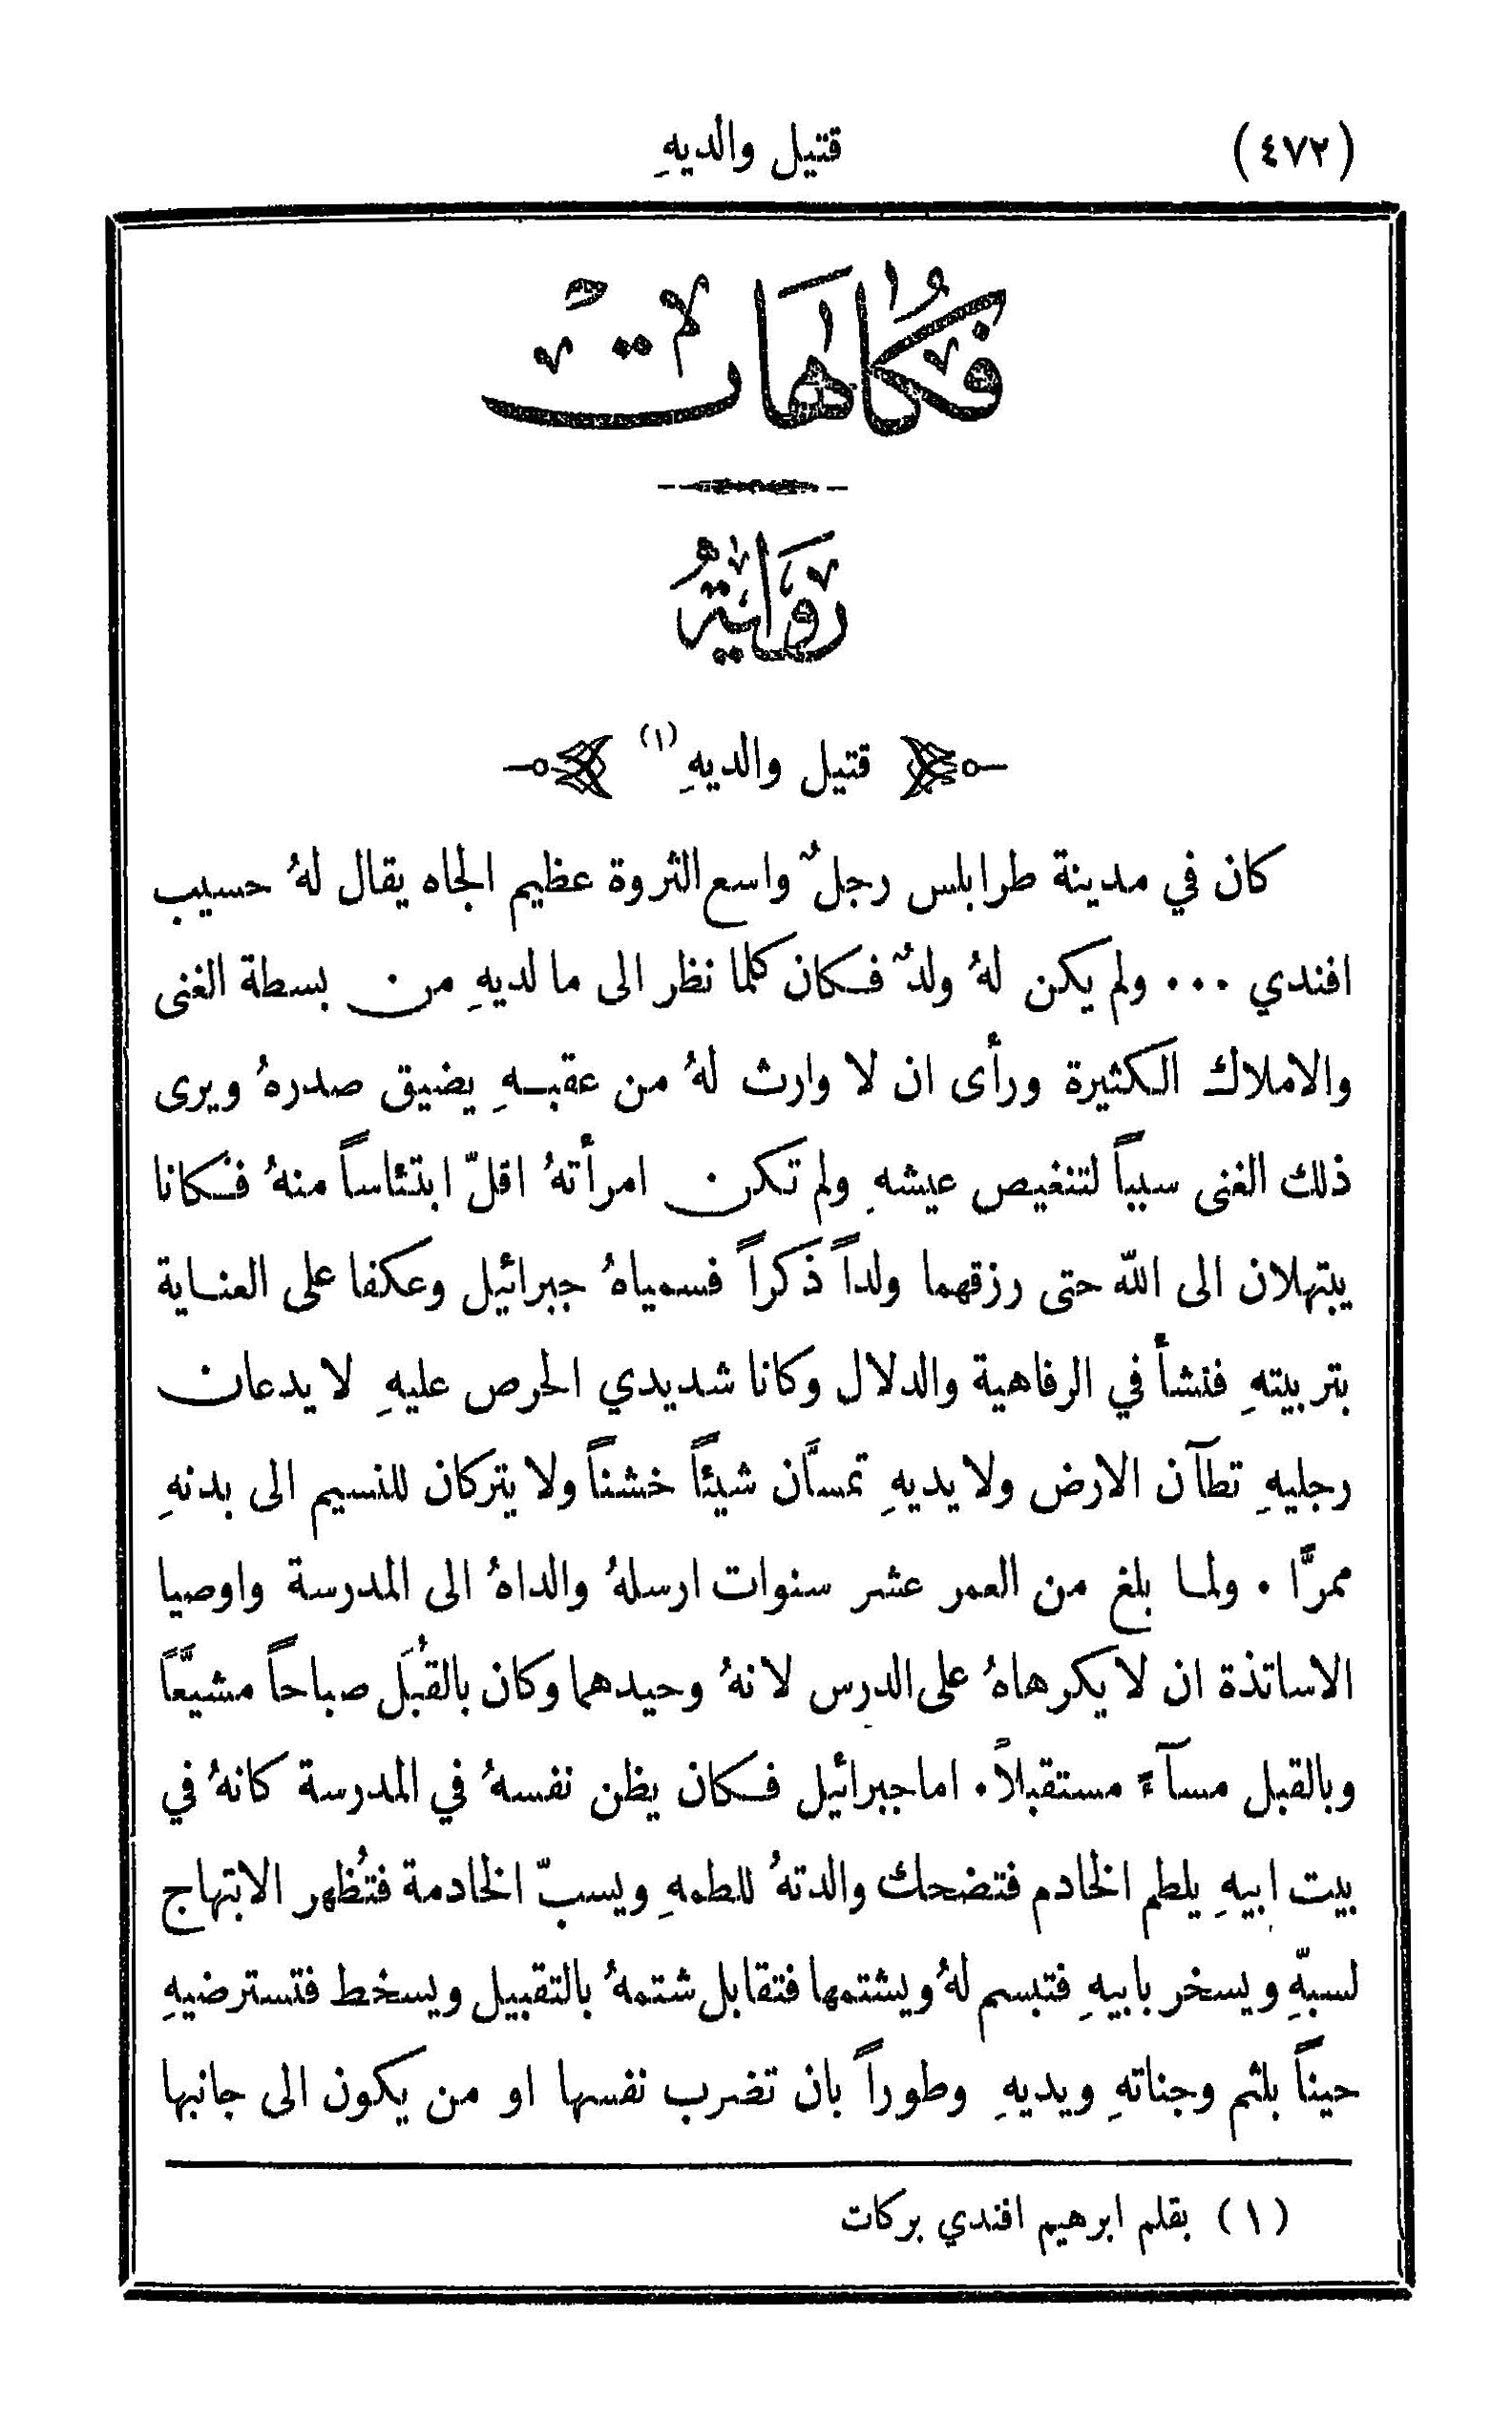 (٤٧٢) قتيل والديهِ
فُكَاهَاتٌ
رِوَايَةُ
قتيل والديهِ (١)
كان في مدينة طرابلس رجلٌ واسع الثروة عظيم الجاه يقال لهُ حسيب
افندي ٠٠٠ ولم يكن لهُ ولدٌ فكان كلما نظر الى ما لديهِ من بسطة الغنى
والاملاك الكثيرة ورأى ان لا وارث لهُ من عقبهِ يضيق صدرهُ ويرى
ذلك الغنى سبباً لتنغيص عيشهِ ولم تكن امرأتهُ اقلّ ابتئاساً منهُ فكانا
يبتهلان الى الله حتى رزقهما ولداً ذكراً فسمياهُ جبرائيل وعكفا على العناية
بتربيتهِ فنشأ في الرفاهية والدلال وكانا شديدي الحرص عليهِ لا يدعان
رجليهِ تطآن الارض ولا يديهِ تمسَّان شيئاً خشناً ولا يتركان للنسيم الى بدنهِ
ممرًّا ٠ ولما بلغ من العمر عشر سنوات ارسلهُ والداهُ الى المدرسة واوصيا
الاساتذة ان لا يكرهاهُ على الدرس لانهُ وحيدهما وكان بالقُبَل صباحاً مشيَّعاً
وبالقبل مسآءً مستقبلاً ٠ اما جبرائيل فكان يظن نفسهُ في المدرسة كانهُ في
بيت ابيهِ يلطم الخادم فتضحك والدتهُ للطمهِ ويسبّ الخادمة فتُظهر الابتهاج
لسبّهِ ويسخر بابيهِ فتبسم لهُ ويشتمها فتقابل شتمهُ بالتقبيل ويسخط فتسترضيهِ
حيناً بلثم وجناتهِ ويديهِ وطوراً بان تضرب نفسها او من يكون الى جانبها
(١) بقلم ابرهيم افندي بركات